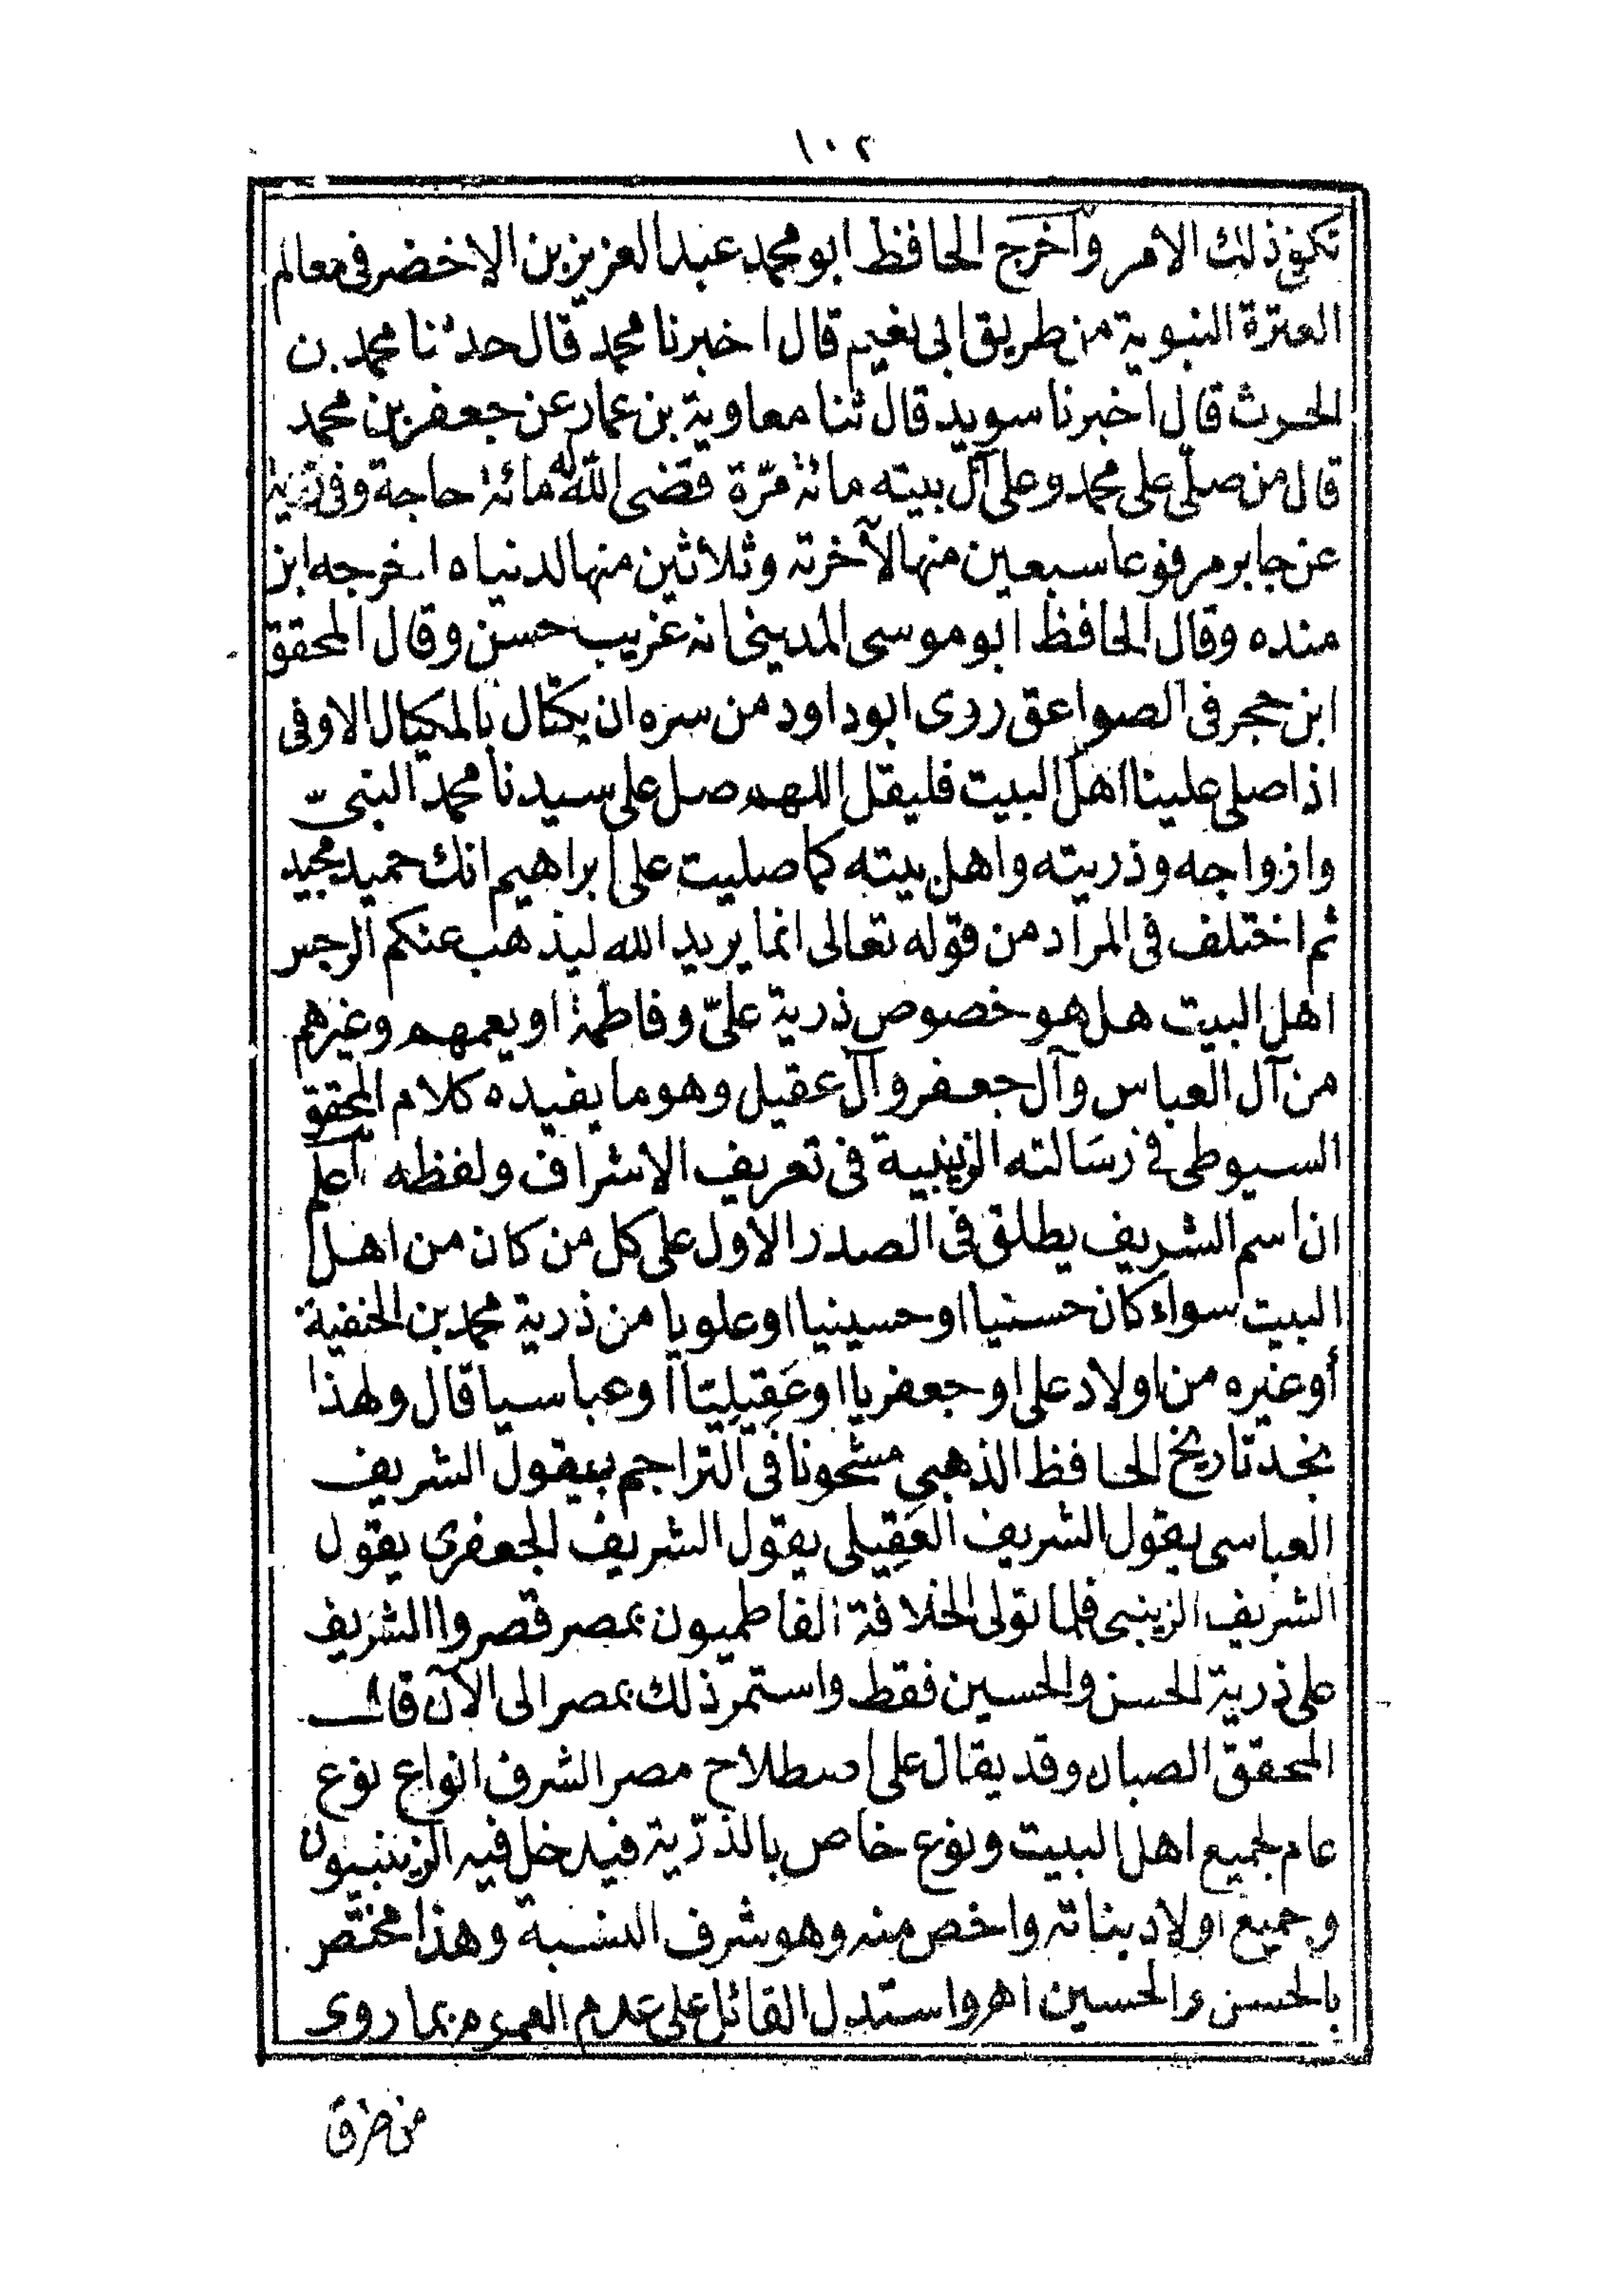 ١٠٢
تكفى ذلك الامر وآخرج الحافظ ابو محمد عبد العزيز بن الاخضر فى معالم
العترة النبوية من طريق ابى نعيم قال اخبرنا محمد قال حدثنا محمد بن
الحرث قال اخبرنا سويد قال ثنا معاوية بن عمار عن جعفر بن محمد
قال من صلّى على محمد وعلى آل بيته مائة مرّة قضى الله له مائة حاجة وفى
عن جابر مرفوعا سبعين منها لآخرته وثلاثين منها لدنياه اخرجه ابن
منده وقال الحافظ ابو موسى المدينى انه غريب حسن وقال المحقق
ابن حجر فى الصواعق روى ابو داود من سره ان يكتال بالمكيال الاوفى
اذا صلى علينا اهل البيت فليقل اللهم صل على سيدنا محمد النبىّ
وازواجه وذريته واهل بيته كما صليت على ابراهيم انك حميد مجيد
ثم اختلف فى المراد من قوله تعالى انما يريد الله ليذهب عنكم الرجس
اهل البيت هل هو خصوص ذرية علىّ وفاطمة او يعمهم وغيرهم
من آل العباس وآل جعفر وآل عقيل وهو ما يفيده كلام المحقق
السيوطى فى رسَالته الزينبية فى تعريف الاشراف ولفظه اعلم
ان اسم الشريف يطلق فى الصدر الاول على كل من كان من اهل
البيت سواء كان حسنيا او حسينيا او علويا من ذرية محمد بن الحنفية
أو غيره من اولاد على او جعفريا او عَقِيلِيّا او عباسيا قال ولهذا
نجد تاريخ الحافظ الذهبي مشحونا فى التراجم بيقول الشريف
العباسى يقول الشريف العَقِيلى يقول الشريف الجعفري يقول
الشريف الزينبى فلما تولى الخلافة الفاطميون بمصر قصروا الشريف
على ذرية الحسن والحسين فقط واستمر ذلك بمصر الى الآن قال
المحقق الصبان وقد يقال على اصطلاح مصر الشرف انواع نوع
عام لجميع اهل البيت ونوع خاص بالذرّية فيدخل فيه الزينبيون
وجميع اولاد بناته واخص منه وهو شرف النسبة وهذا مختص
بالحسن والحسين اهـ واستدل القائل على عدم العموم بما روى
من طرق